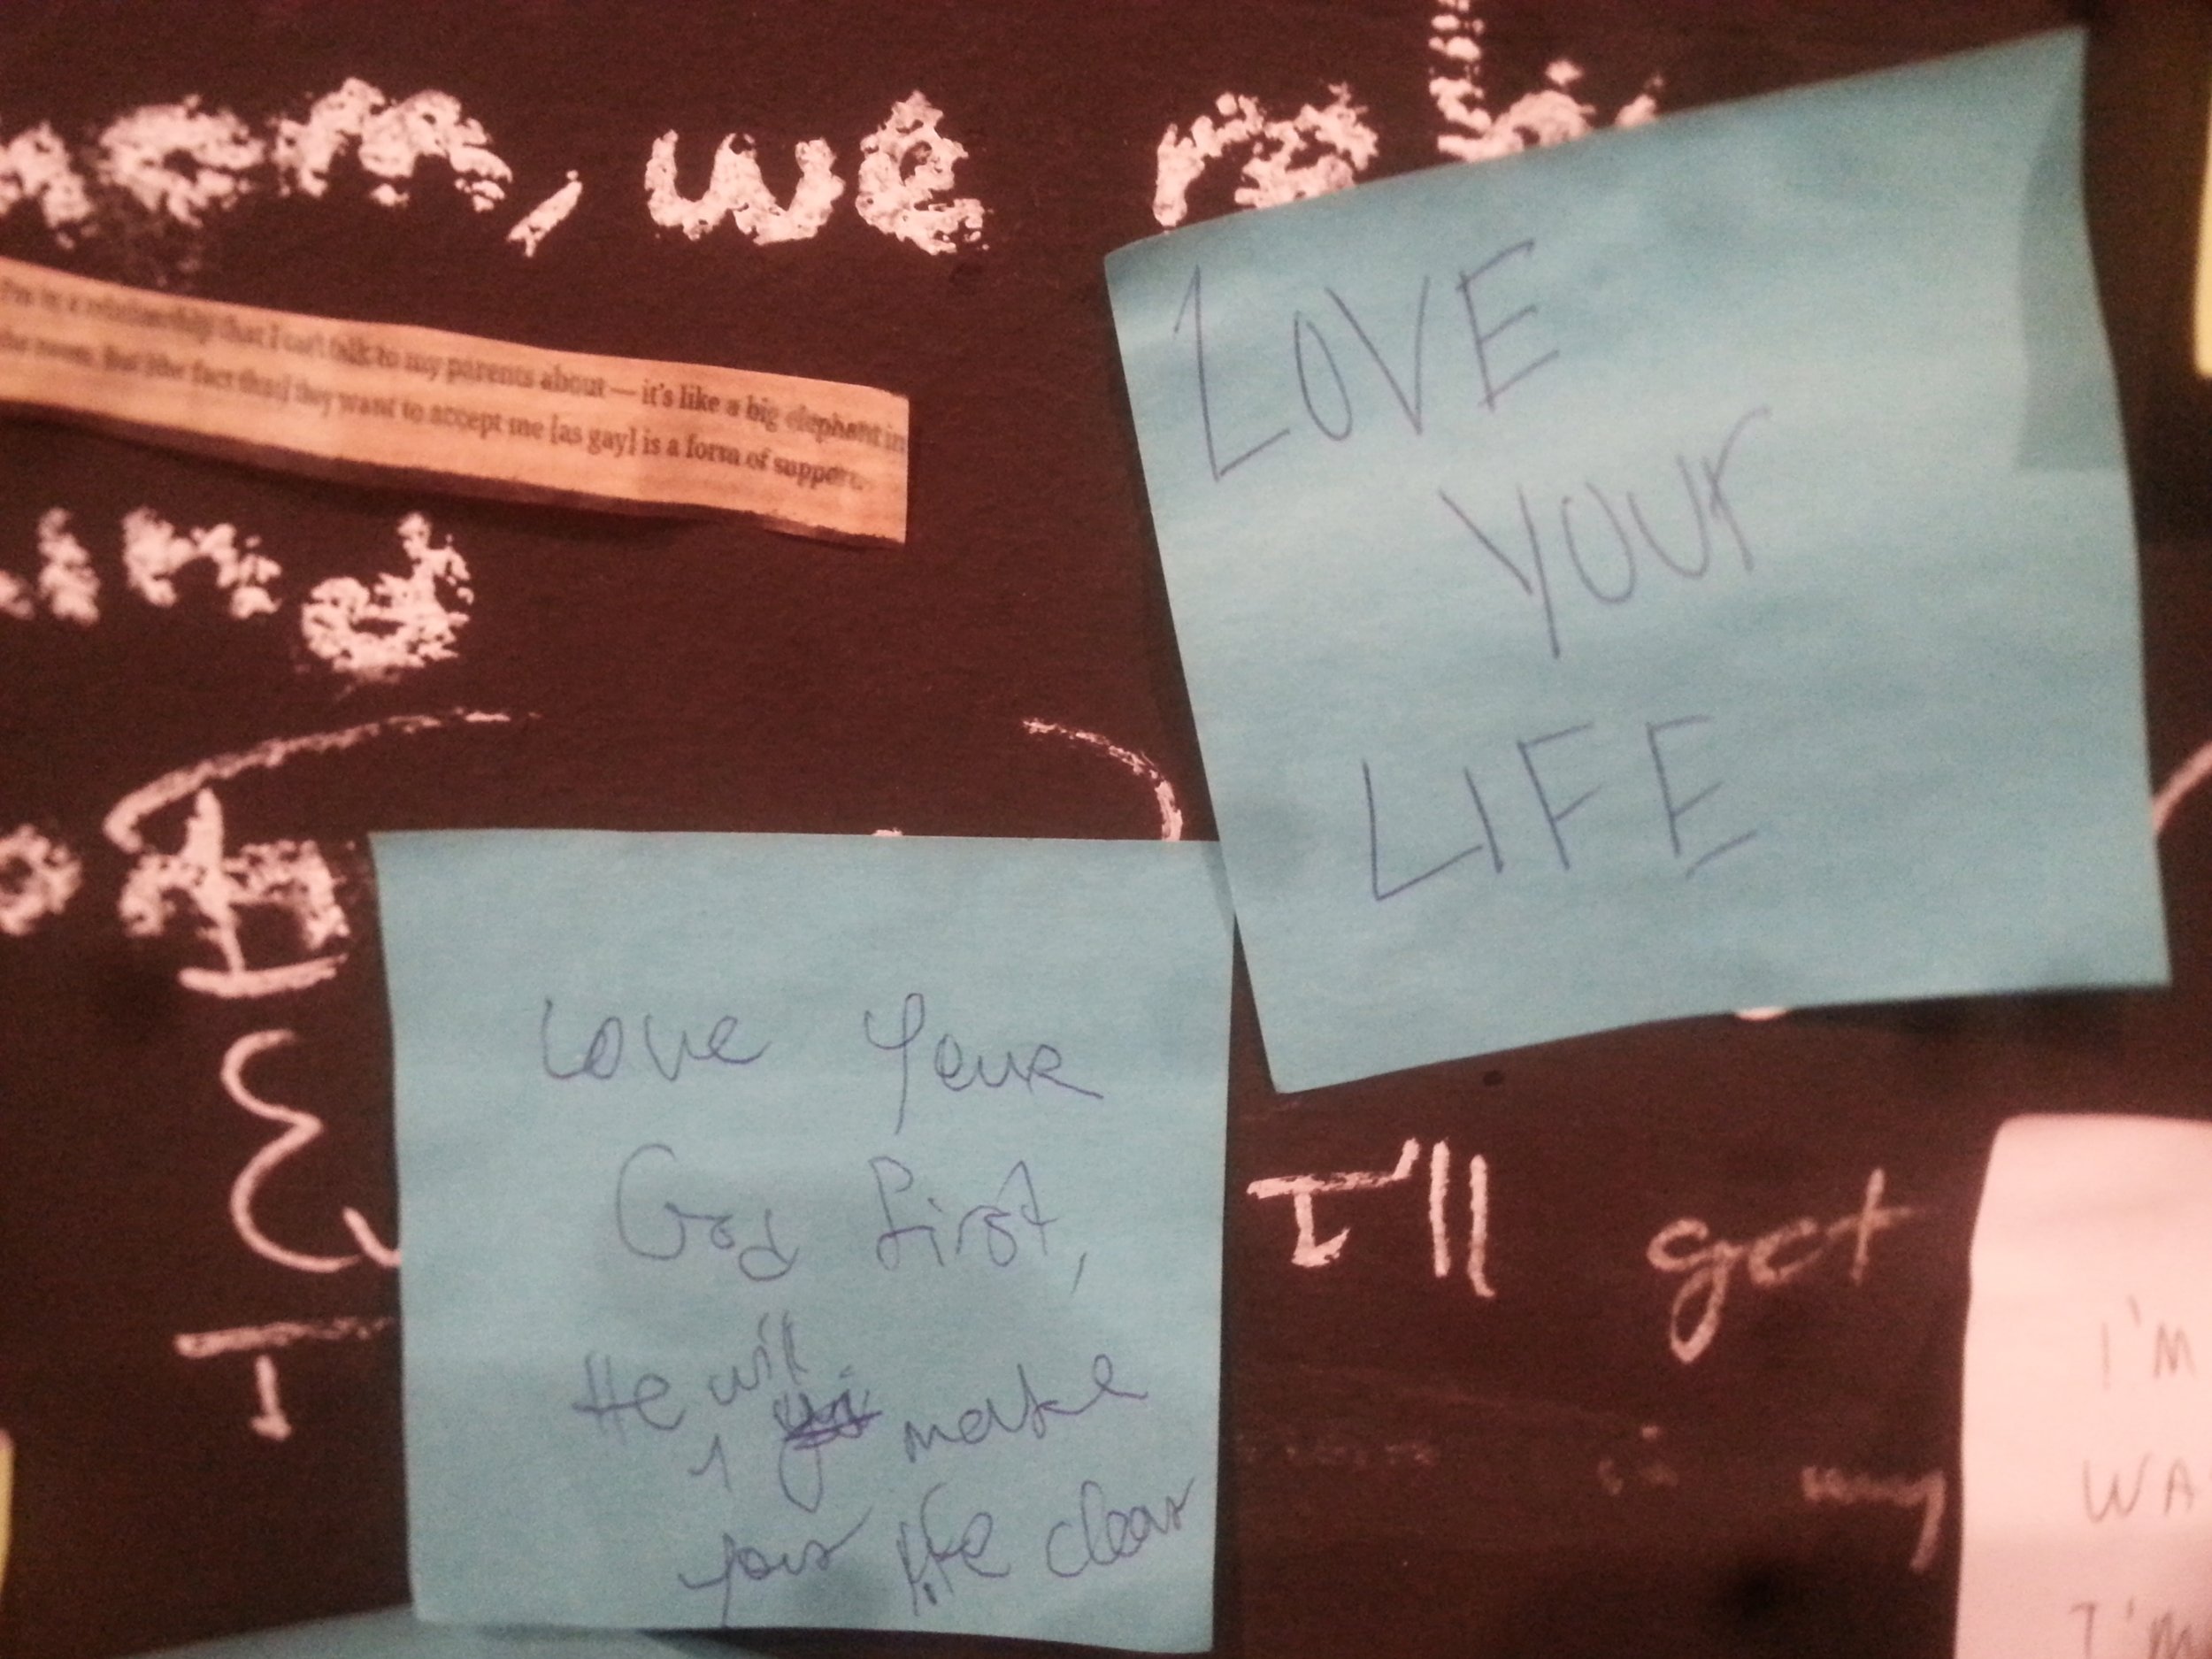 , we
I'm in a relationship that I can't talk to my parents about — it's like a big elephant in
the room. But [the fact that] they want to accept me [as gay] is a form of support.
LOVE
YOUR
LIFE
Love Your
God first,
He will make
your life clear
I'll get
my
I'M
WA
I'm